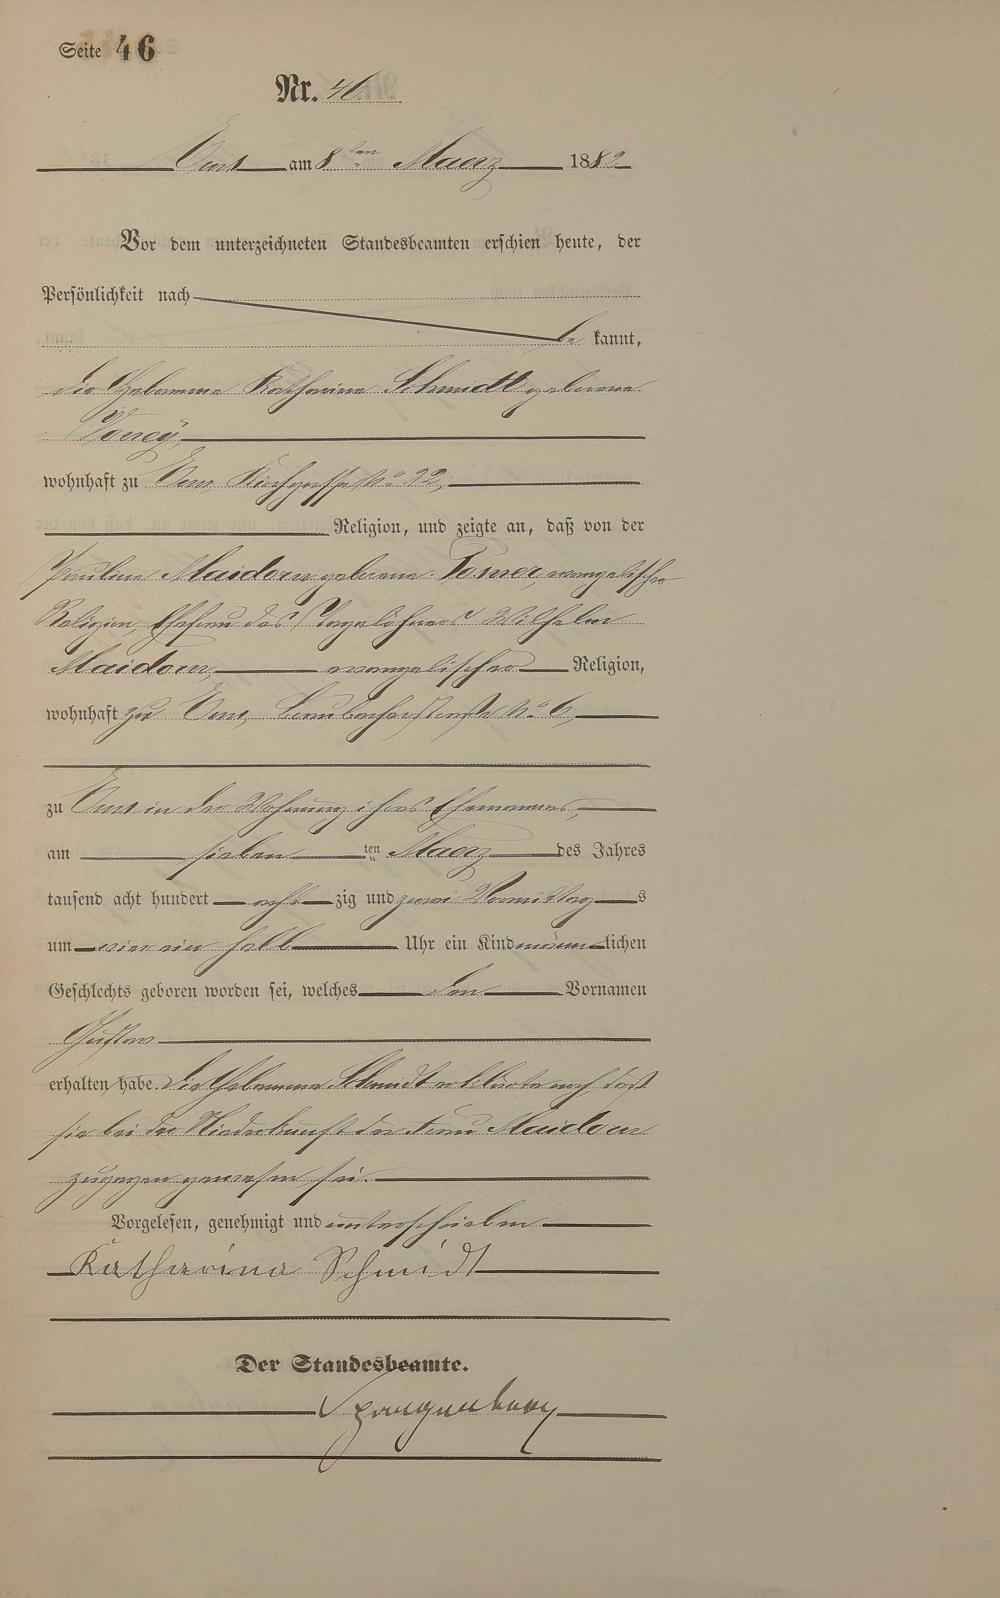 Seite 46
Nr. 46.
Ems am 8ten Maerz 1882
Vor dem unterzeichneten Standesbeamten erschien heute, der
Persönlichkeit nach
be kannt,
die Hebamme Katharina Schmidt geborene
wohnhaft zu Ems, Kirchgasse No 22,
Religion, und zeigte an, daß von der
Pauline Maidorn geborene Posner, evangelischer
Religion, Ehefrau des Tagelöhners Wilhelm
Maidorn, evangelischer Religion,
wohnhaft zu Ems, No 6,
zu Ems in der Wohnung ihres Ehemannes,
am sieben ten Maerz des Jahres
tausend acht hundert acht zig und zwei Vormittag s
um vier ein halb Uhr ein Kind männ lichen
Geschlechts geboren worden sei, welches den Vornamen
Gustav
erhalten habe. Die Hebamme Schmidt erklärte noch, dass
sie bei der Niederkunft der Frau Maidorn
zugegen gewesen sei.
Vorgelesen, genehmigt und unterschrieben
Katharina Schmidt
Der Standesbeamte.
Spangenberg